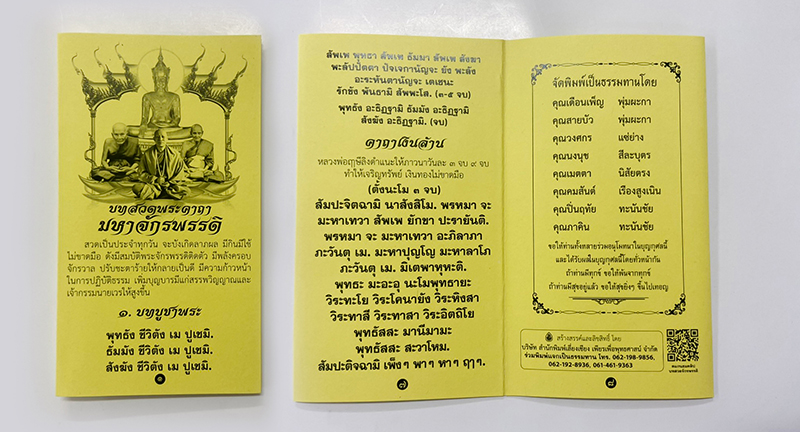 บทสวดพระคาถา
มหาจักรพรรดิ
สวดเป็นประจำทุกวัน จะบังเกิดลาภผล มีกินมีใช้
ไม่ขาดมือ ดังมีสมบัติพระจักรพรรดิติดตัว มีพลังครอบ
จักรวาล ปรับชะตาร้ายให้กลายเป็นดี มีความก้าวหน้า
ในการปฏิบัติธรรม เพิ่มบุญบารมีแก่สรรพวิญญาณและ
เจ้ากรรมนายเวรให้สูงขึ้น
๑. บทบูชาพระ
พุทธัง ชีวิตัง เม ปูเชมิ.
ธัมมัง ชีวิตัง เม ปูเชมิ.
สังฆัง ชีวิตัง เม ปูเชมิ.
๑
สัพเพ พุทธา สัพเพ ธัมมา สัพเพ สังฆา
พะลัปปัตตา ปัจเจกานัญจะ ยัง พะลัง
อะระหันตานัญจะ เตเชนะ
รักขัง พันธามิ สัพพะโส. (๓-๕ จบ)
พุทธัง อะธิฏฐามิ ธัมมัง อะธิฏฐามิ
สังฆัง อะธิฏฐามิ. (จบ)
คาถาเงินล้าน
หลวงพ่อฤๅษีลิงดำแนะให้ภาวนาวันละ ๓ จบ ๙ จบ
ทำให้เจริญทรัพย์ เงินทองไม่ขาดมือ
(ตั้งนะโม ๓ จบ)
สัมปะจิตฉามิ นาสังสิโม. พรหมา จะ
มะหาเทวา สัพเพ ยักขา ปะรายันติ.
พรหมา จะ มะหาเทวา อะภิลาภา
ภะวันตุ เม. มะหาปุญโญ มะหาลาโภ
ภะวันตุ เม. มิเตพาหุหะติ.
พุทธะ มะอะอุ นะโมพุทธายะ
วิระทะโย วิระโคนายัง วิระหิงสา
วิระทาสี วิระทาสา วิระอิตถิโย
พุทธัสสะ มานีมามะ
พุทธัสสะ สะวาโหม.
สัมปะติจฉามิ เพ็งๆ พาๆ หาๆ ฤาๆ.
๗
จัดพิมพ์เป็นธรรมทานโดย
คุณเดือนเพ็ญ พุ่มผะกา
คุณสายบัว พุ่มผะกา
คุณวงศกร แซ่ย่าง
คุณนงนุช สีละบุตร
คุณเมตตา นิสัยตรง
คุณคมสันต์ เรืองสูงเนิน
คุณปิ่นฤทัย ทะนันชัย
คุณภาคิน ทะนันชัย
ขอให้ท่านทั้งหลายร่วมอนุโมทนาในบุญกุศลนี้
และได้รับผลในบุญกุศลนี้โดยทั่วหน้ากัน
ถ้าท่านมีทุกข์ ขอให้พ้นจากทุกข์
ถ้าท่านมีสุขอยู่แล้ว ขอให้สุขยิ่งๆ ขึ้นไปเทอญ
สร้างสรรค์และลิขสิทธิ์ โดย
บริษัท สำนักพิมพ์เลี่ยงเชียง เพียรเพื่อพุทธศาสน์ จำกัด
ร่วมพิมพ์แจกเป็นธรรมทาน โทร. 062-198-9856,
062-192-8936, 061-461-9363
๘